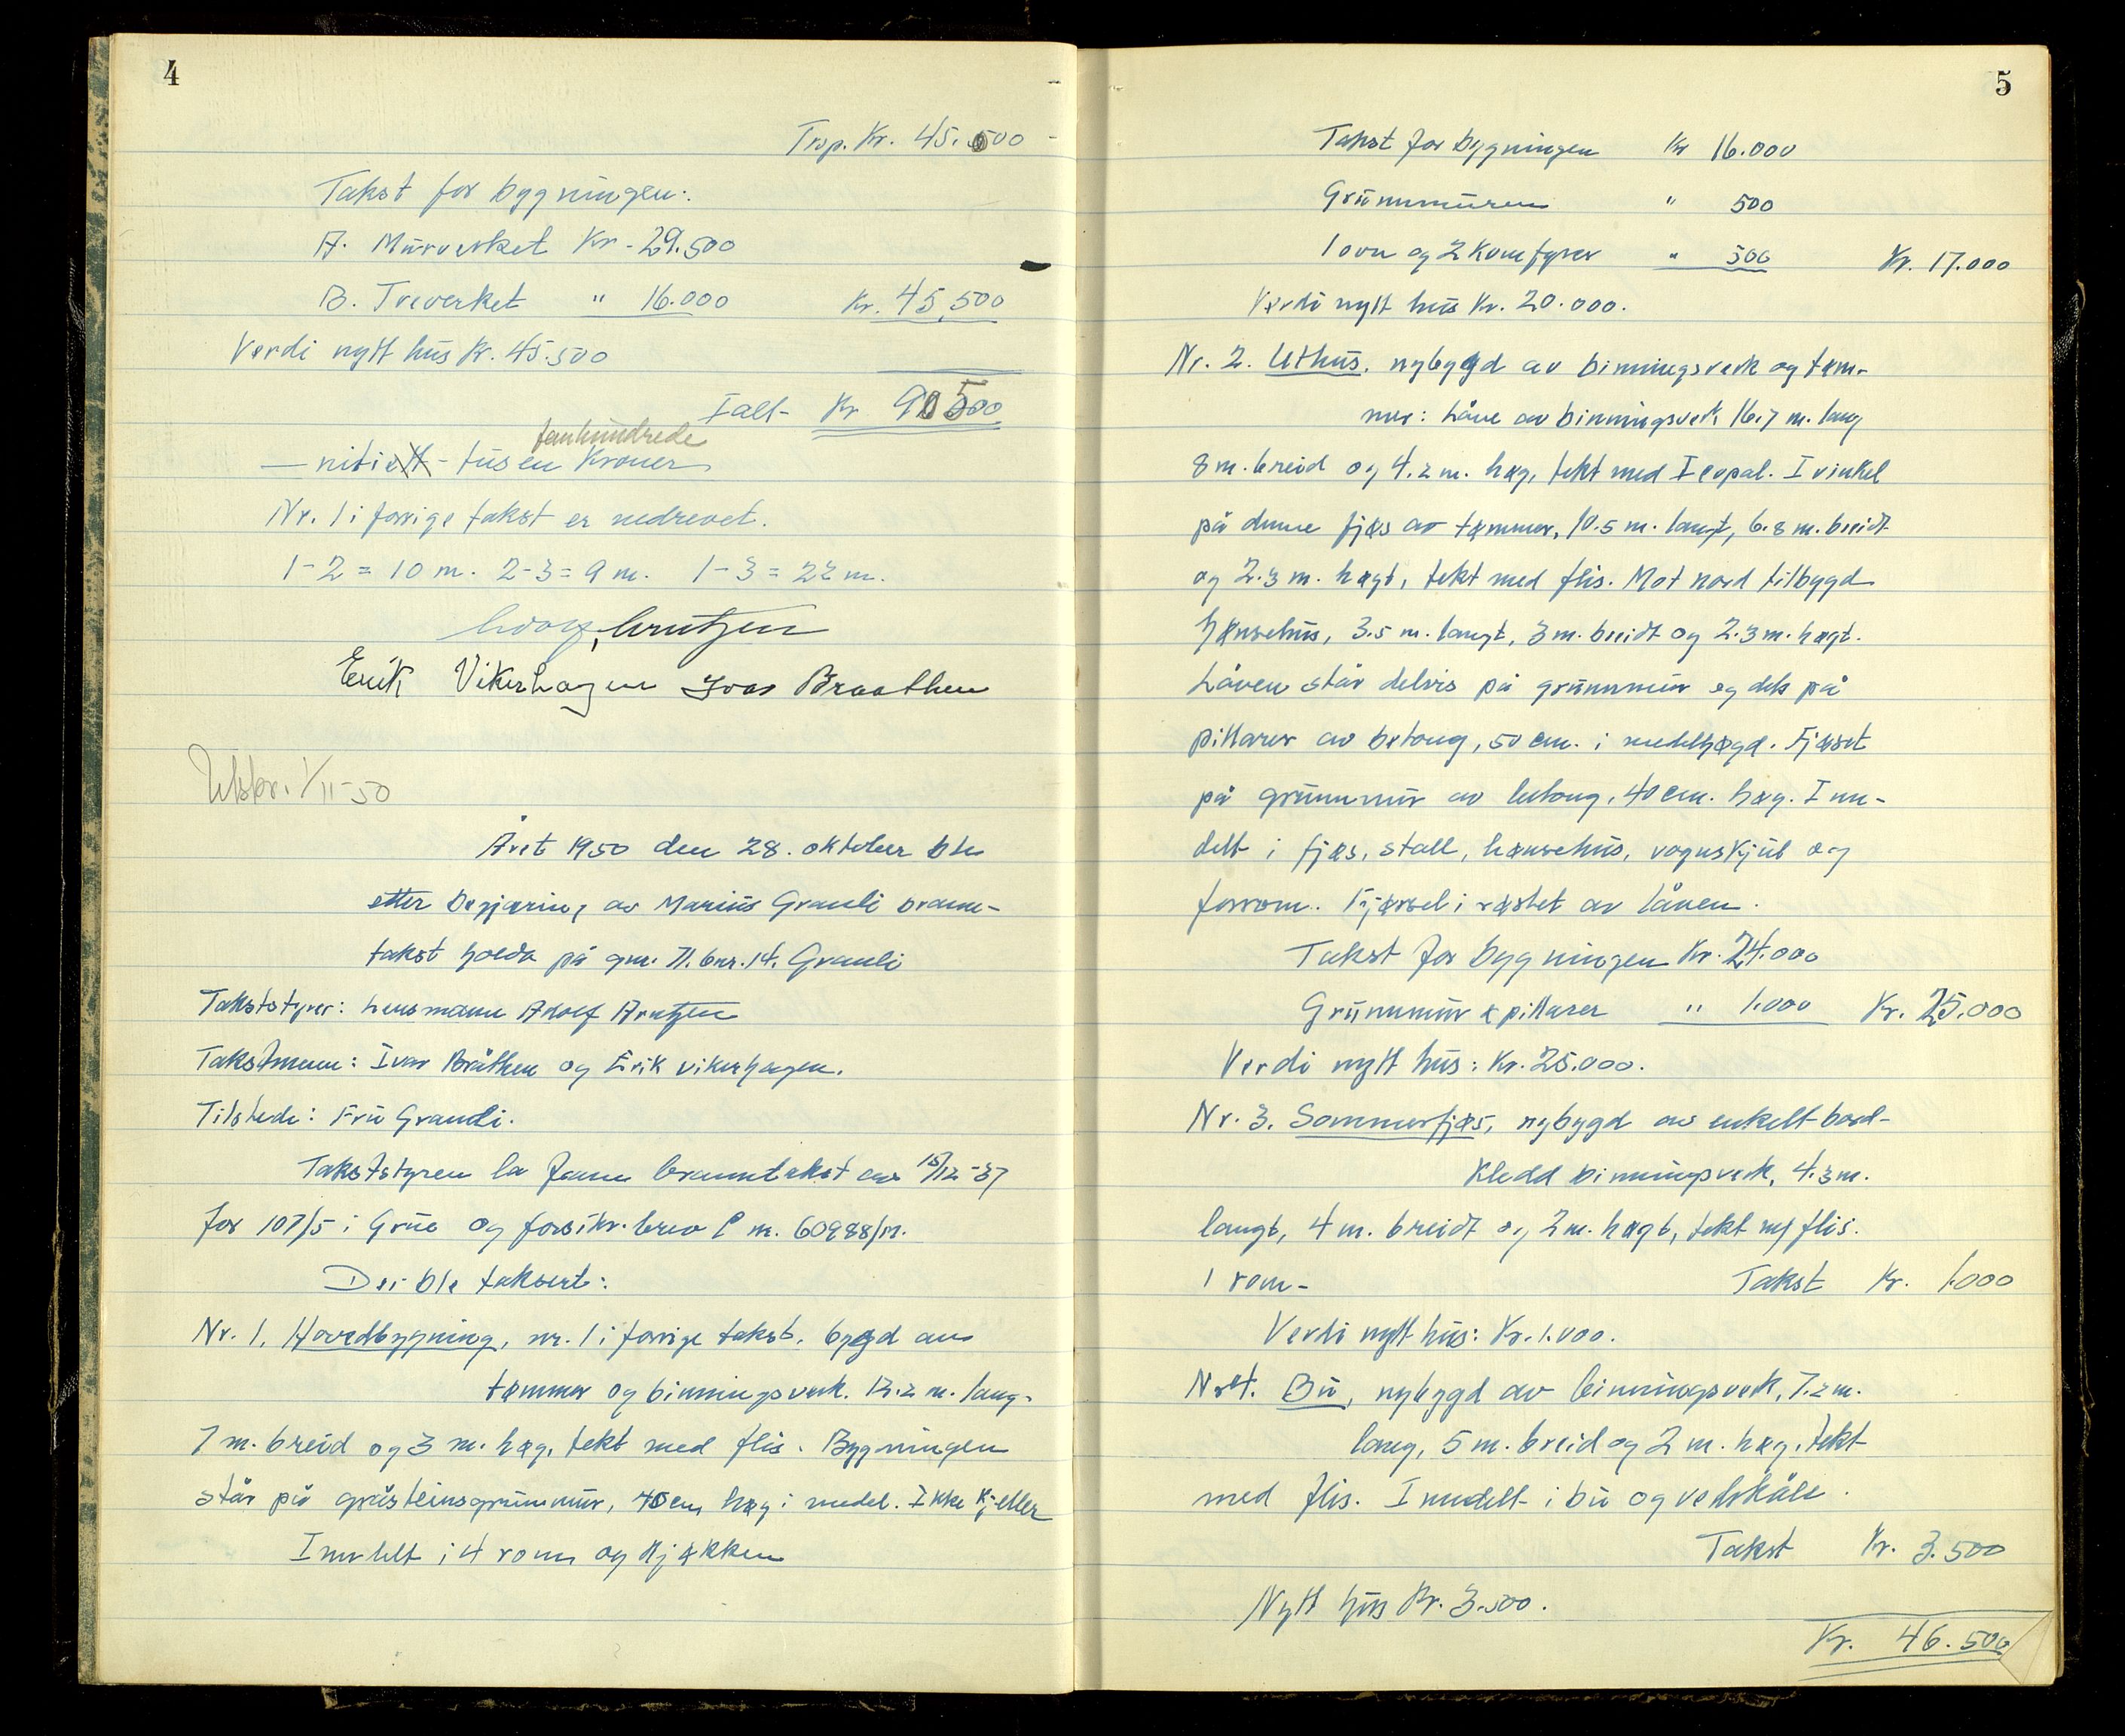 4
Trsp. Kr. 45.000
Takst for bygningen:
A. Murverket Kr. 29.500
B. Treverket " 16.000 Kr. 45.500
Verdi nytt hus Kr. 45.500
Ialt Kr 90500
femhundrede
— nitiett - tusen Kroner
Nr. 1 i forrige takst er nedrevet.
1-2 = 10 m. 2-3 = 9 m. 1-3 = 22 m.
Adolf Arntzen
Erik Vikerhagen Ivar Braathen
Utskr. 1/11-50
Året 1950 den 28. oktober ble
etter begjæring av Marius Granli brann-
takst holdt på gnr. 71. bnr. 14. Granli
Takststyrer: Lensmann Adolf Arntzen
Takstmenn: Ivar Bråthen og Erik Vikerhagen.
Tilstede: Fru Granli.
Takststyren la fram branntakst av 15/12-37
for 107/5 i Grue og forsikr. brev nr. 60988/M.
Der ble taksert:
Nr. 1. Hovedbygning, nr. 1 i forrige takst, bygd av
tømmer og binningsverk. 12.2 m. lang.
7 m. breid og 3 m. høg, tekt med flis. Bygningen
står på gråsteinsgrunnmur, 40 cm høg i medel. Ikke kjeller
Inndelt i 4 rom og kjøkken
5
Takst for bygningen Kr 16.000
Grunnmuren " 500
1 ovn og 2 komfyrer " 500 Kr. 17.000
Verdi nytt hus Kr. 20.000.
Nr. 2. Uthus, nybygd av binningsverk og tøm-
mer: Låve av binningsverk 16.7 m. lang
8 m. breid og 4.2 m. høg, tekt med Icopal. I vinkel
på denne fjøs av tømmer, 10.5 m. langt, 6.8 m. breidt
og 2.3 m. høgt, tekt med flis. Mot nord tilbygd
hønsehus, 3.5 m. langt, 3 m. breidt og 2.3 m. høgt.
Låven står delvis på grunnmur og dels på
pillarer av betong, 50 cm. i medelhøgd. Fjøset
på grunnmur av betong, 40 cm. høg. Inn-
delt i fjøs, stall, hønsehus, vognskjul og
forrom. Kjørsel i røstet av låven.
Takst for bygningen Kr. 24.000
Grunnmur & pillarer " 1.000 Kr. 25.000
Verdi nytt hus: Kr. 25.000.
Nr. 3. Sommerfjøs, nybygd av enkelt bord-
kledd binningsverk, 4.3 m.
langt, 4 m. breidt og 2 m. høgt, tekt m/ flis.
1 rom - Takst Kr. 1.000
Verdi nytt hus: Kr. 1.000.
Nr 4. Bu, nybygd av binningsverk, 7.2 m.
lang, 5 m. breid og 2 m. høg, tekt
med flis. Inndelt i bu og vedskåle.
Takst Kr. 3.500
Nytt hus Kr. 3.500.
Kr. 46.500